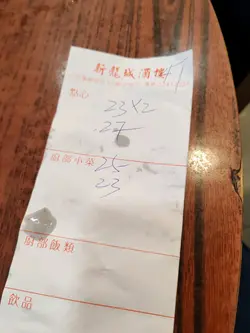 新龍城酒樓
點心
23×2
27
廚部小菜
25
23
廚部飯類
飲品